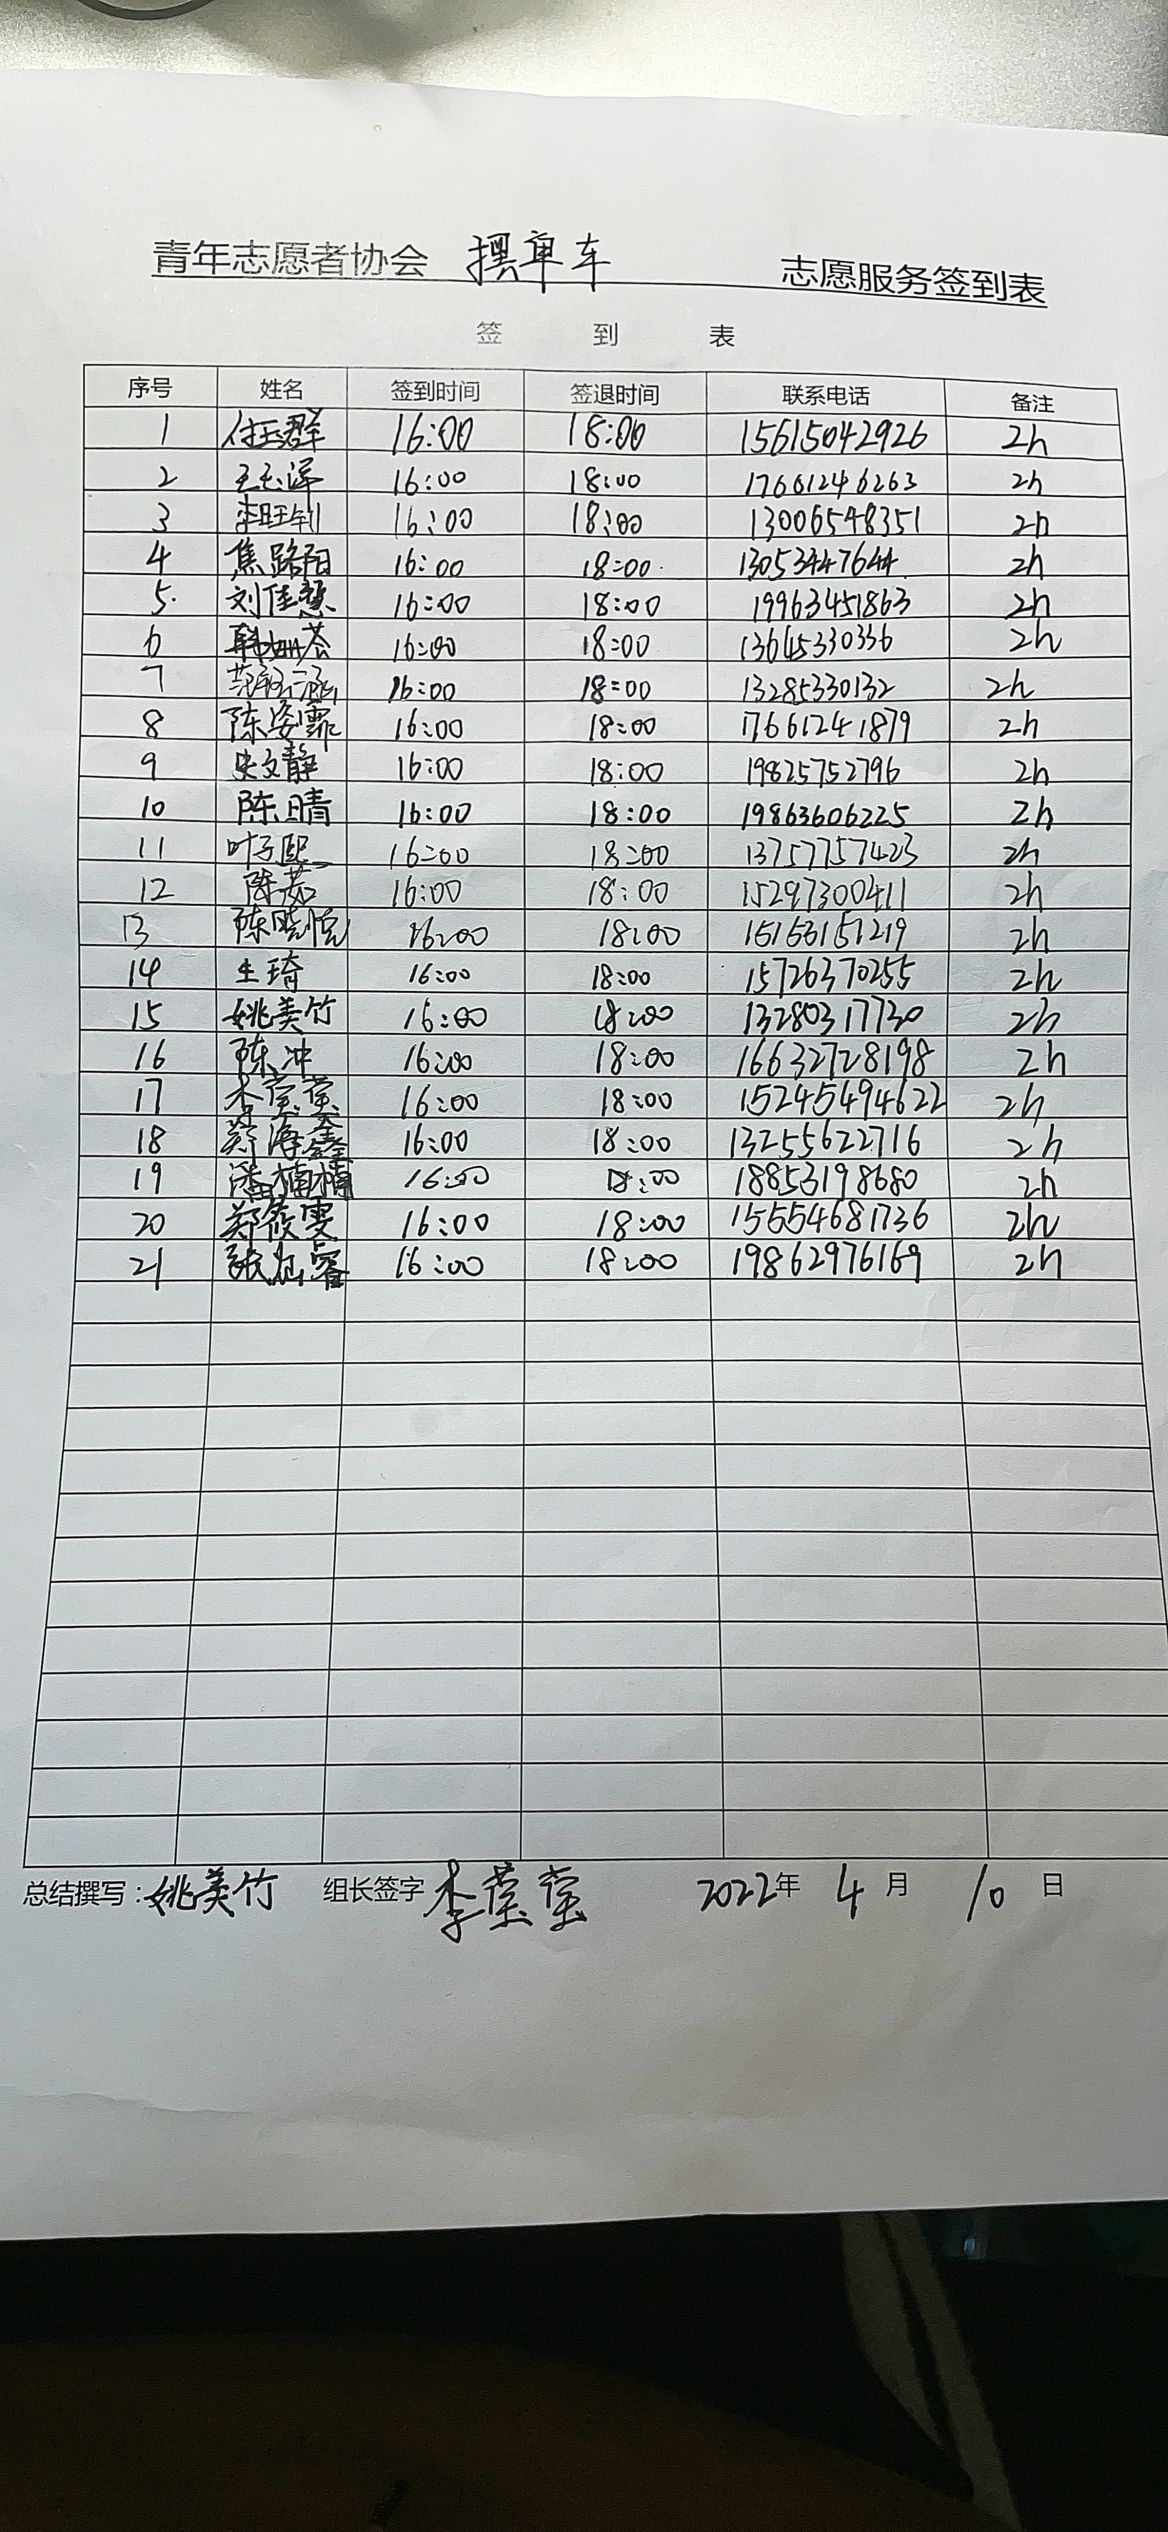 青年志愿者协会 摆单车 志愿服务签到表
签 到 表
序号 姓名 签到时间 签退时间 联系电话 备注
1 付玉群 16:00 18:00 15615042926 2h
2 16:00 18:00 17661246263 2h
3 16:00 18:00 13006548351 2h
4 焦路阳 16:00 18:00 13053447644 2h
5. 刘佳慧 16:00 18:00 19963451863 2h
6 16:00 18:00 13645330336 2h
7 16:00 18:00 13285330132 2h
8 陈姿霏 16:00 18:00 17661241879 2h
9 史文静 16:00 18:00 19825752796 2h
10 陈晴 16:00 18:00 19863606225 2h
11 叶子熙 16:00 18:00 13757757423 2h
12 陈茹 16:00 18:00 15297300411 2h
13 陈晓悦 16:00 18:00 15156151219 2h
14 王琦 16:00 18:00 15726370255 2h
15 姚美竹 16:00 18:00 13280317730 2h
16 陈冲 16:00 18:00 16632728198 2h
17 李莹莹 16:00 18:00 15245494622 2h
18 郑海鑫 16:00 18:00 13255622716 2h
19 潘楠楠 16:00 18:00 18853198680 2h
20 郑筱雯 16:00 18:00 15554681736 2h
21 16:00 18:00 19862976169 2h
总结撰写:姚美竹 组长签字 李莹莹 2022年 4 月 10 日